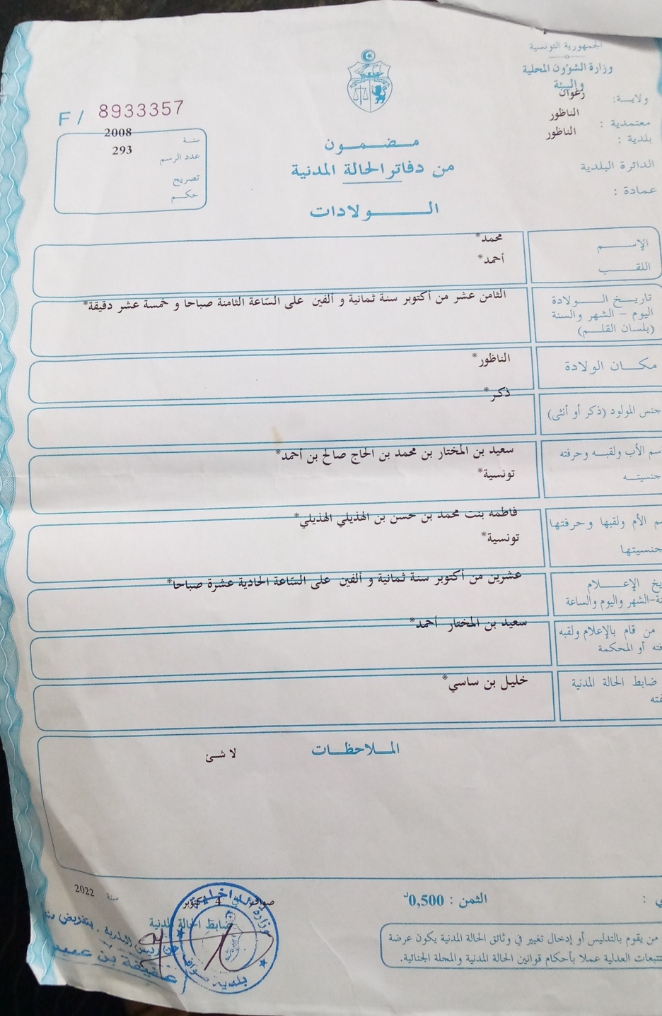 الجمهورية التونسية
وزارة الشؤون المحلية
والبيئة
ولاية: زغوان
معتمدية : الناظور
بلدية : الناظور
الدائرة البلدية
عمادة :
F/ 8933357
سنة 2008
عدد الرسم 293
تصريح
حكم
مضمون
من دفاتر الحالة المدنية
الولادات
الإسم محمد*
اللقب أحمد*
تاريخ الولادة
اليوم - الشهر والسنة
(بلسان القلم)
الثامن عشر من أكتوبر سنة ثمانية و ألفين على السّاعة الثامنة صباحا و خمسة عشر دقيقة*
مكان الولادة الناظور*
جنس المولود (ذكر أو أنثى) ذكر*
سم الأب ولقبه وحرفته سعيد بن المختار بن محمد بن الحاج صالح بن أحمد*
جنسيته تونسية*
م الأم ولقبها وحرفتها فاطمه بنت محمد بن حسن بن الهذيلي الهذيلي*
جنسيتها تونسية*
يخ الإعلام
ـة-الشهر واليوم والساعة
عشرين من أكتوبر سنة ثمانية و ألفين على السّاعة الحادية عشرة صباحا*
من قام بالإعلام ولقبه
فته أو المحكمة
سعيد بن المختار أحمد*
ضابط الحالة المدنية
فته
خليل بن ساسي*
الملاحظات
لا شئ
ي : الثمن : 0,500د
من يقوم بالتدليس أو إدخال تغيير في وثائق الحالة المدنية يكون عرضة
تتبعات العدلية عملا بأحكام قوانين الحالة المدنية والمجلة الجنائية.
صواف 4 أكتوبر سنة 2022
ضابط الحالة المدنية